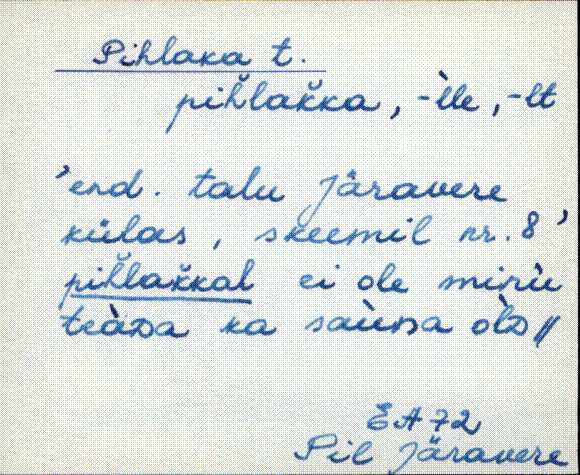 Pihlaka t.
pihlak̆ka, -l̀le, -lt
'end. talu Järavere
külas, skeemil nr. 8'
pihlak̆kal ei ole minù
teàᴅa ka saùna òlᴅ //
EA 72
Pil Järavere